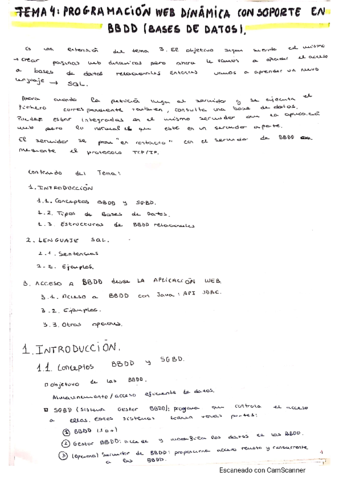 TEMA 4: PROGRAMACIÓN WEB DINÁMICA CON SOPORTE EN
BBDD (BASES DE DATOS).
es una extensión del tema 3. El objetivo sigue siendo el mismo
→ crear paginas web dinamicas pero ahora le vamos a añadir el acceso
a bases de datos relacionales entonces vamos a aprender un nuevo
lenguaje → SQL.
cuando la petición llega al servidor y se ejecuta el
fichero correspondiente tambien, consulta una base de datos.
Pueden estar integradas en el mismo servidor que la aplicación
web pero lo normal es que esté en un servidor aparte.
El servidor se pone "en contacto" con el servidor de BBDD
mediante el protocolo TCP/IP.
Contenido del Tema:
1. INTRODUCCIÓN
1.1. Conceptos BBDD y SGBD.
1.2. Tipos de Bases de Datos.
1.3. Estructuras de BBDD relacionales
2. LENGUAJE SQL.
2.1. Sentencias
2.2. Ejemplos.
3. ACCESO A BBDD desde LA APLICACIÓN WEB
3.1. Acceso a BBDD con Java: API JDBC.
3.2. Ejemplos.
3.3. Otras opciones.
1. INTRODUCCIÓN.
1.1 Conceptos BBDD y SGBD.
objetivo de las BBDD.
Almacenamiento/acceso eficiente a datos.
SGBD (Sistema Gestor BBDD): programa que controla el acceso
a ellas. Estos sistemas tienen partes:
① BBDD (1 o +)
② Gestor BBDD: accede y modifica los datos en las BBDD.
③ (opcional) Servidor de BBDD: proporciona acceso remoto y concurrente
a las BBDD.
Escaneado con CamScanner